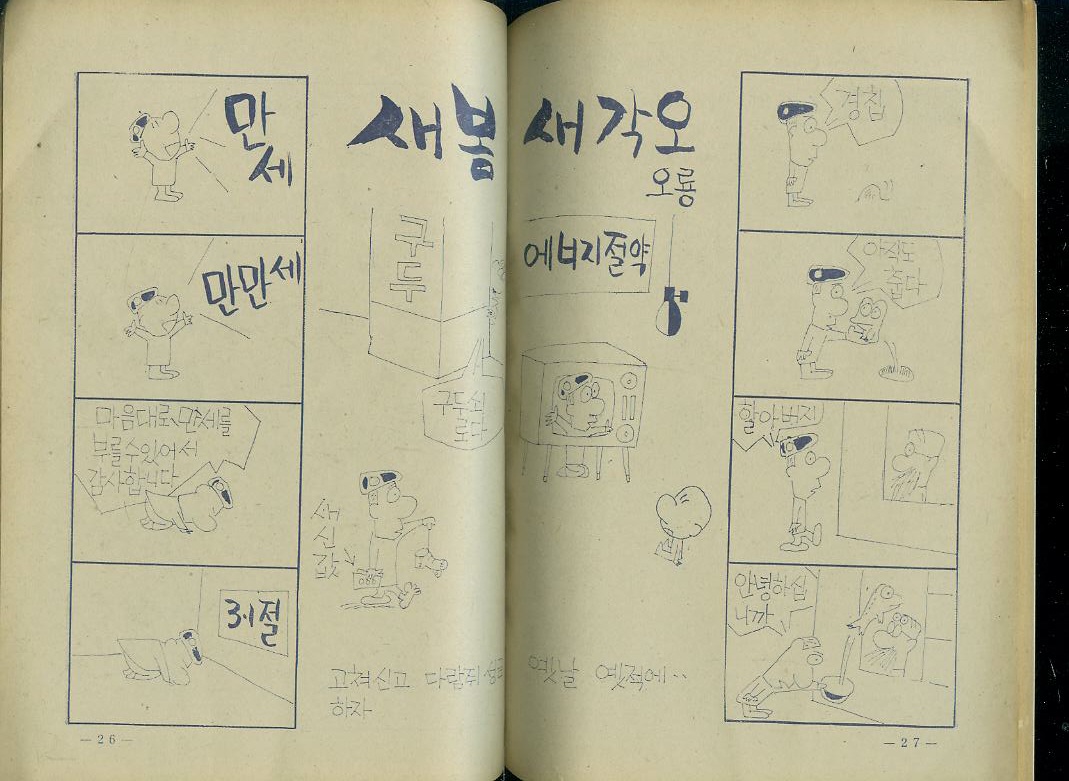 새봄 새각오
오룡
만
세
만만세
마음대로 만세를
부를수있어서
감사합니다
3·1절
구
두
구두쇠
로다
새
신
값
고쳐신고 다람쥐
하자
에너지절약
옛날 옛적에··
경칩
아직도
춥다
할아버지
안녕하십
니까
— 26 —
— 27 —